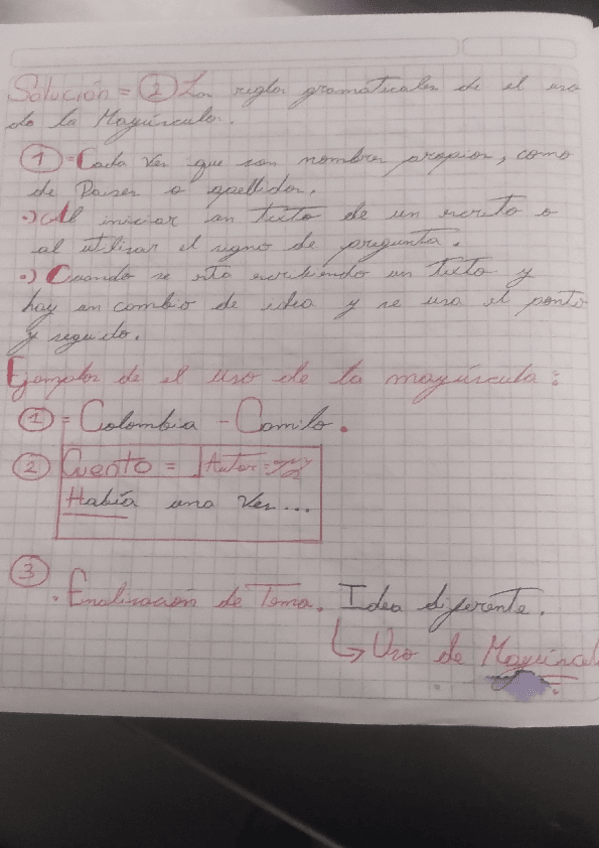 Solución = 2 Las reglas gramaticales de el uso
de la Mayúscula.
1 = Cada vez que son nombres propios, como
de Países o apellidos.
•) Al iniciar un texto de un escrito o
al utilizar el signo de pregunta.
•) Cuando se esta escribiendo un texto y
hay un cambio de idea y se usa el punto
y seguido.
Ejemplos de el uso de la mayúscula:
1 = Colombia - Camilo.
2 Cuento = Autor =
Había una Vez...
3
• Finalización de Tema. Idea diferente.
↳ Uso de Mayúscul